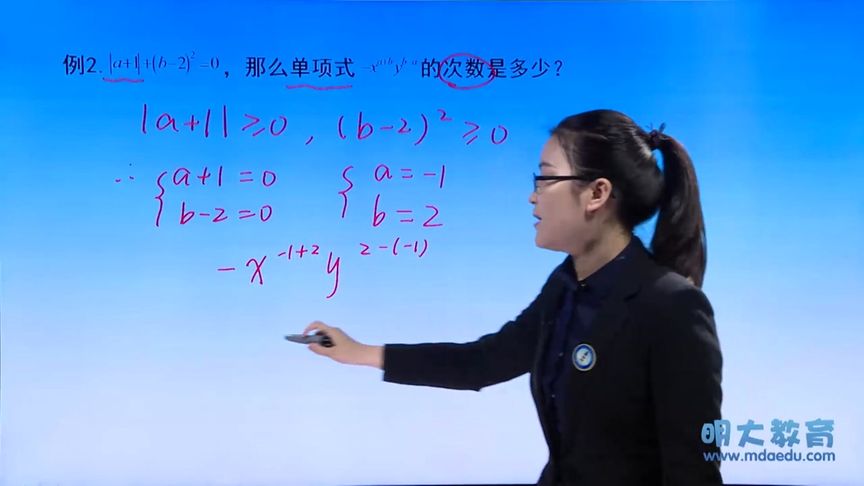 例2. |a+1|+(b-2)²=0，那么单项式 -xᵃ⁺ᵇyᵇ⁻ᵃ的次数是多少？
|a+1|≥0，(b-2)²≥0
∴ { a+1=0 { a=-1
b-2=0 b=2
-x⁻¹⁺²y²⁻⁽⁻¹⁾
明大教育
www.mdaedu.com